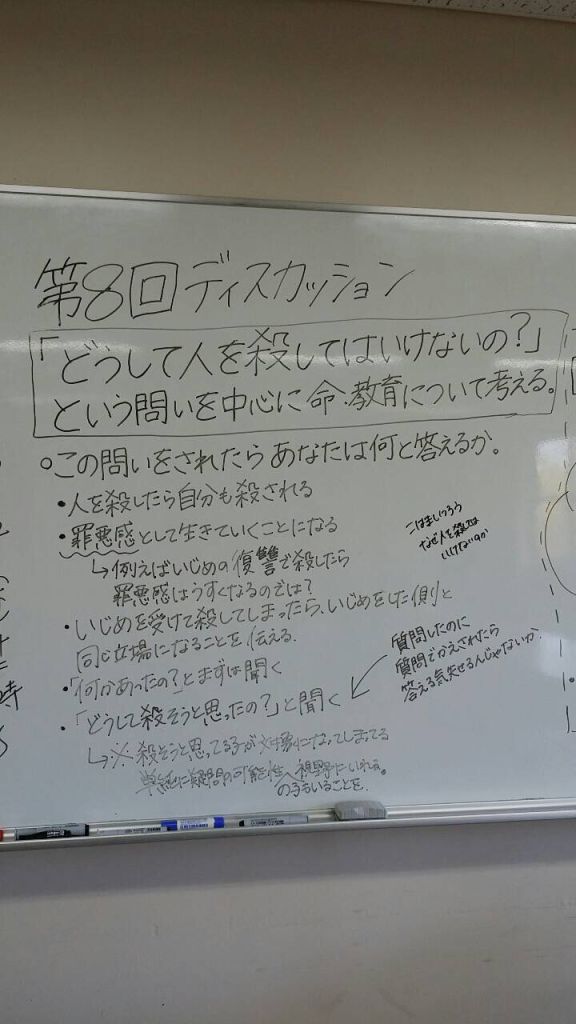 第8回ディスカッション
「どうして人を殺してはいけないの?」
という問いを中心に命・教育について考える。
○この問いをされたらあなたは何と答えるか。
・人を殺したら自分も殺される
・罪悪感として生きていくことになる
↳例えばいじめの復讐で殺したら
罪悪感はうすくなるのでは?
・いじめを受けて殺してしまったら、いじめをした側と
同じ立場になることを伝える。
・「何かあったの?」とまずは聞く
・「どうして殺そうと思ったの?」と聞く
↳※殺そうと思ってる子が対象になってしまってる
単純に疑問の可能性へ視野にいれる。
の子もいることを
こはましいろう
なぜ人を殺しては
いけないのか
質問したのに
質問でかえされたら
答える気失せるんじゃないか